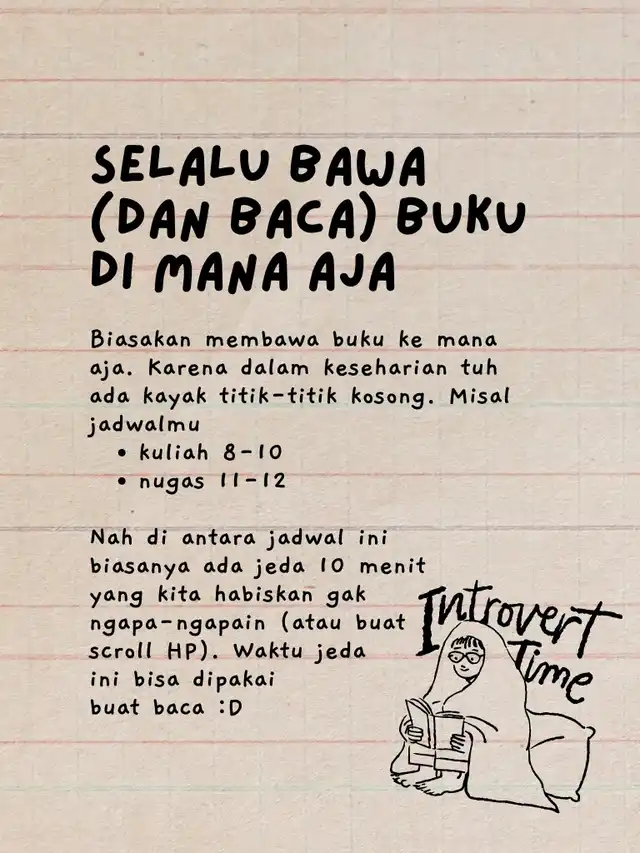 SELALU BAWA
(DAN BACA) BUKU
DI MANA AJA
Biasakan membawa buku ke mana
aja. Karena dalam keseharian tuh
ada kayak titik-titik kosong. Misal
jadwalmu
• kuliah 8-10
• nugas 11-12
Nah di antara jadwal ini
biasanya ada jeda 10 menit
yang kita habiskan gak
ngapa-ngapain (atau buat
scroll HP). Waktu jeda
ini bisa dipakai
buat baca :D
Introvert
Time